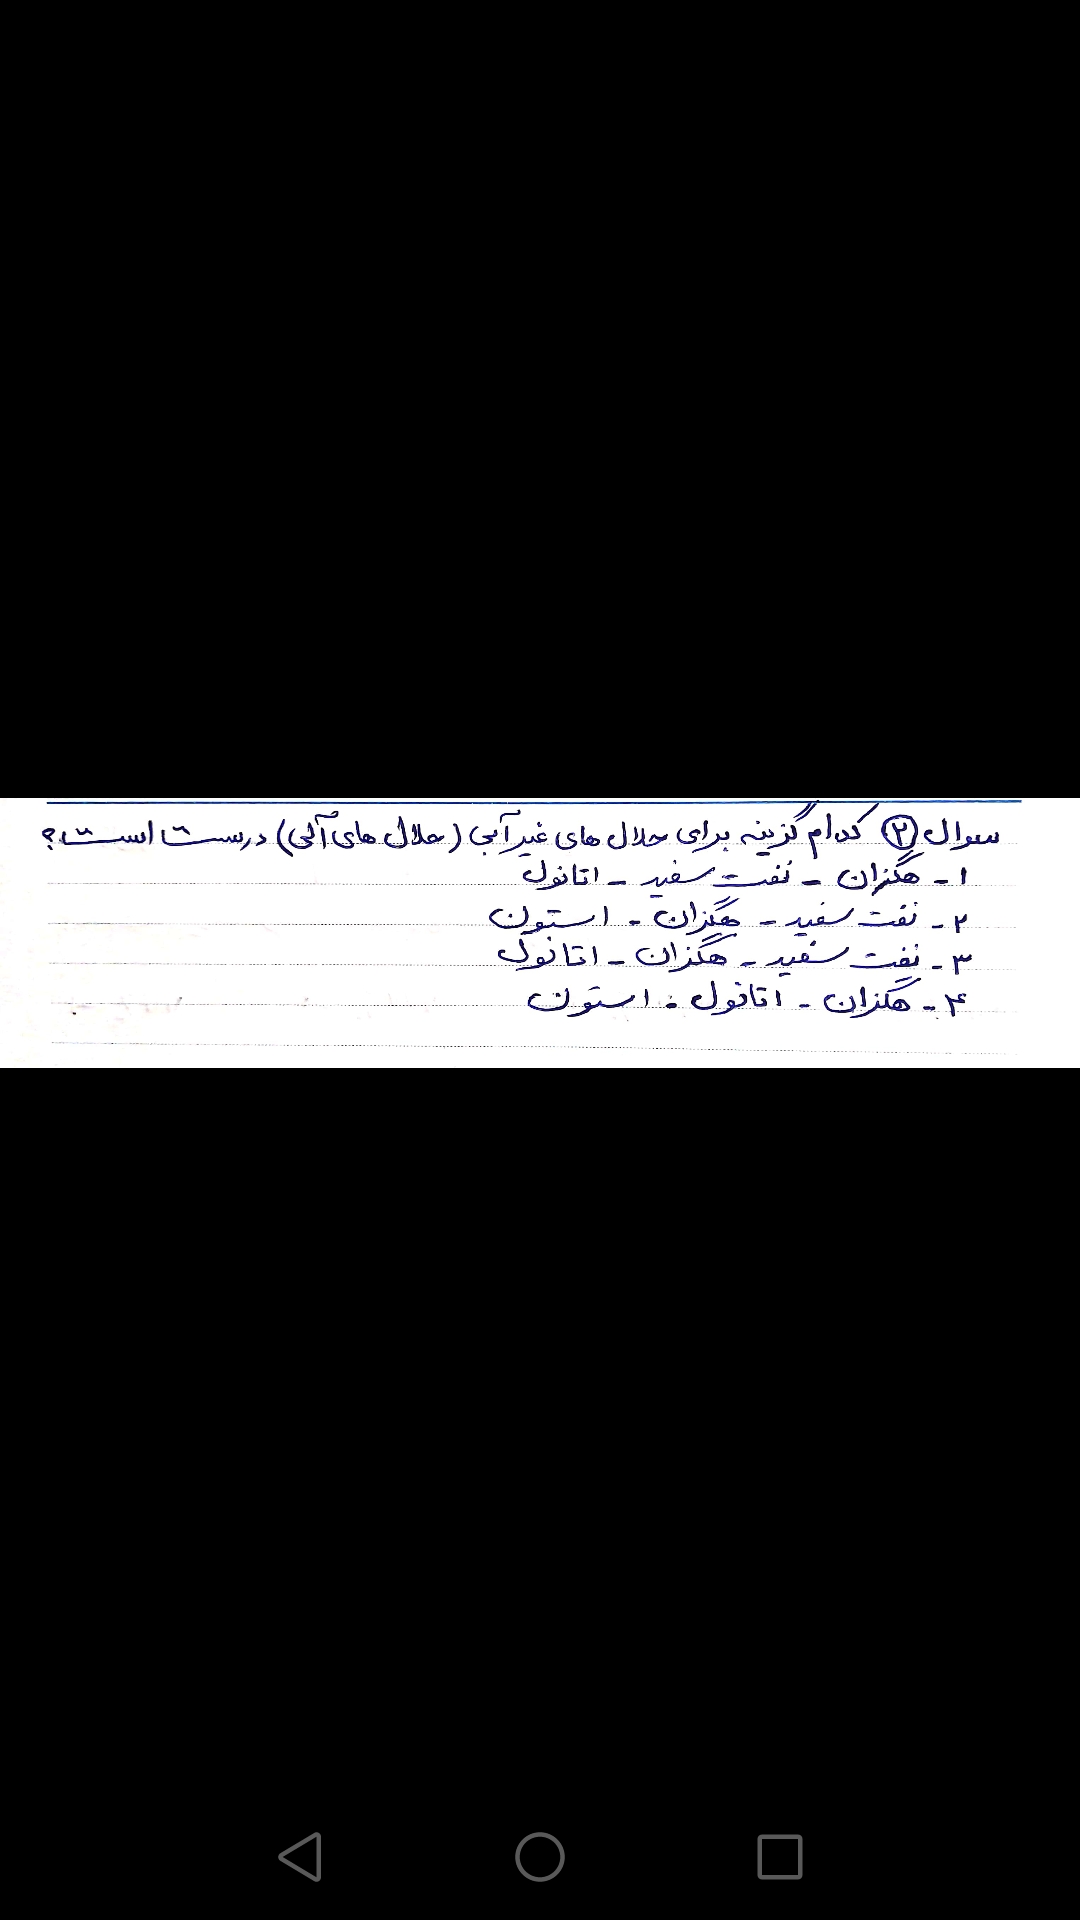 سوال ۲ کدام گزینه برای حلال های غیر آبی (حلال های آلی) درست است؟
۱- هگزان - نفت سفید - اتانول
۲- نفت سفید - هگزان - استون
۳- نفت سفید - هگزان - اتانول
۴- هگزان - اتانول - استون